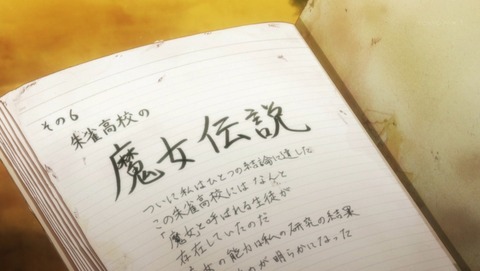 その6
朱雀高校の
魔女伝説
ついに私はひとつの結論に達した
この朱雀高校には なんと
「魔女」と呼ばれる生徒が
存在していたのだ
女の能力は私の研究の結果
のが明らかになった